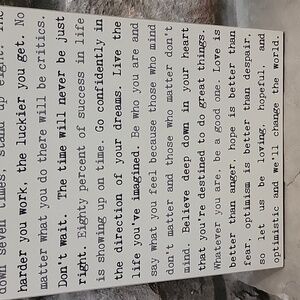 down seven times, stand up eight. The
harder you work, the luckier you get. No
matter what you do there will be critics.
Don't wait. The time will never be just
right. Eighty percent of success in life
is showing up on time. Go confidently in
the direction of your dreams. Live the
life you've imagined. Be who you are and
say what you feel because those who mind
don't matter and those who matter don't
mind. Believe deep down in your heart
that you're destined to do great things.
Whatever you are, be a good one. Love is
better than anger, hope is better than
fear, optimism is better than despair,
so let us be loving, hopeful, and
optimistic and we'll change the world.